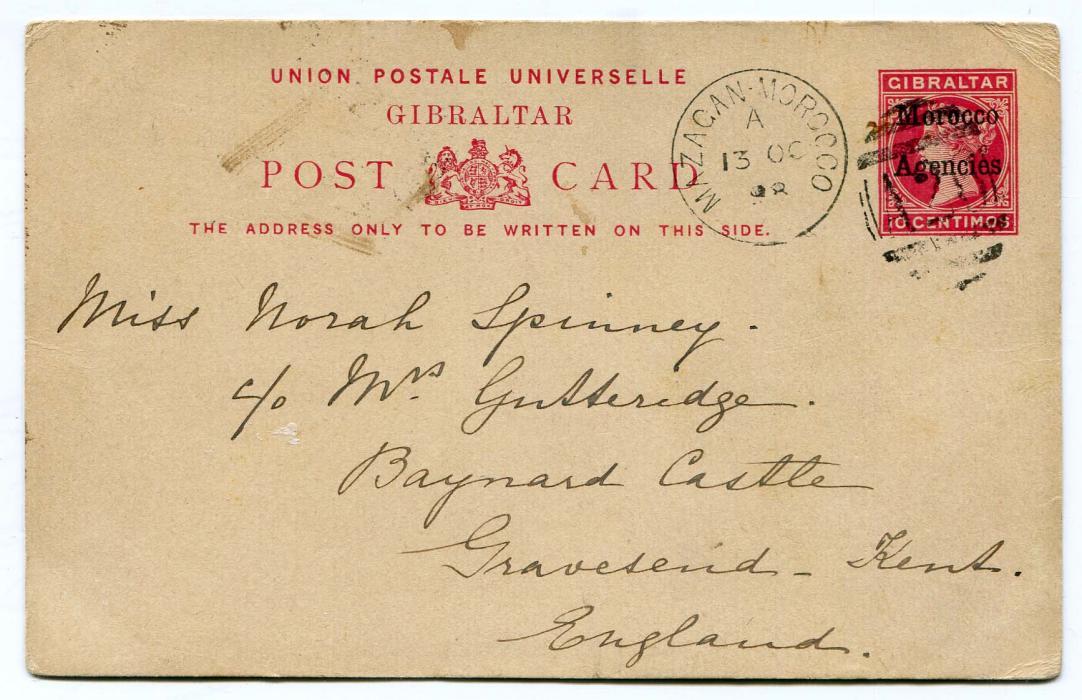 UNION POSTALE UNIVERSELLE
GIBRALTAR
POST CARD
THE ADDRESS ONLY TO BE WRITTEN ON THIS SIDE.
MAZAGAN-MOROCCO
A
13 OC
98
GIBRALTAR
Morocco
Agencies
10 CENTIMOS
Miss Norah Spinney.
c/o Mrs. Gutteridge.
Baynard Castle
Gravesend - Kent.
England.